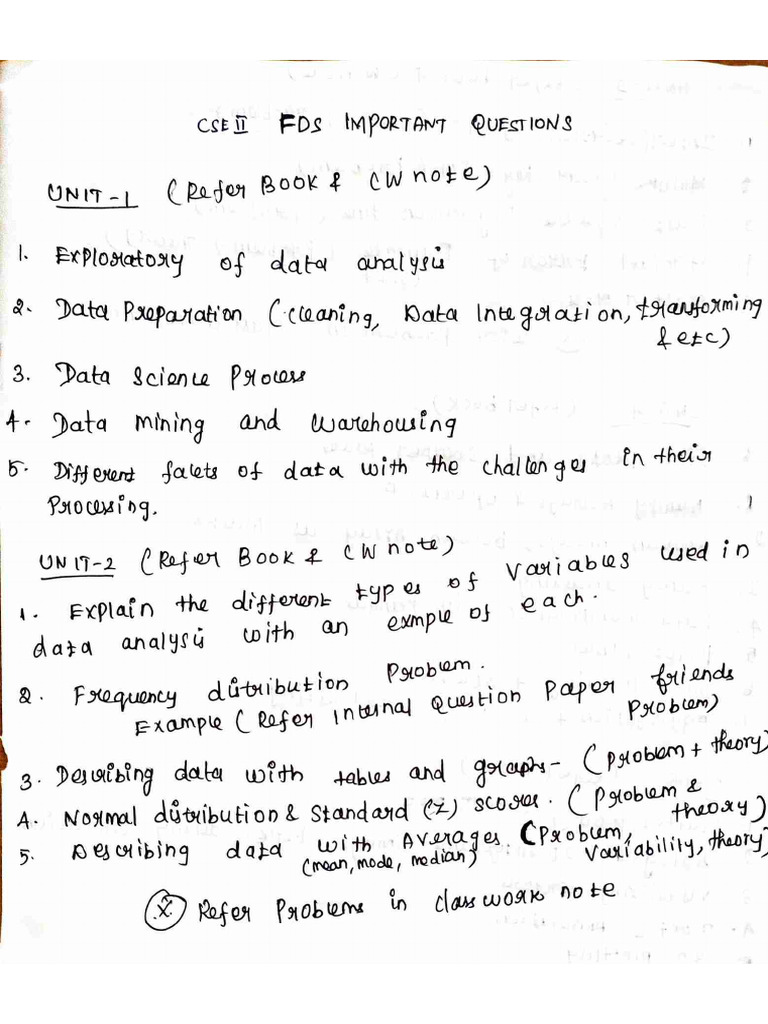 CSE II FDS IMPORTANT QUESTIONS
UNIT-1 (Refer BOOK & CW note)
1. Exploratory of data analysis
2. Data Preparation (cleaning, Data Integration, transforming
& etc)
3. Data Science Process
4. Data mining and warehousing
5. Different facets of data with the challenges in their
Processing.
UNIT-2 (Refer BOOK & CW note)
1. Explain the different types of variables used in
data analysis with an exmple of each.
2. Frequency distribution Problem.
Example (Refer Internal Question Paper friends
Problem)
3. Describing data with tables and graphs- (problem + theory)
4. Normal distribution & Standard (z) scores. (Problem &
theory)
5. Describing data with AVERAGES (Problem,
(mean, mode, median) Variability, theory)
Refer Problems in classwork note